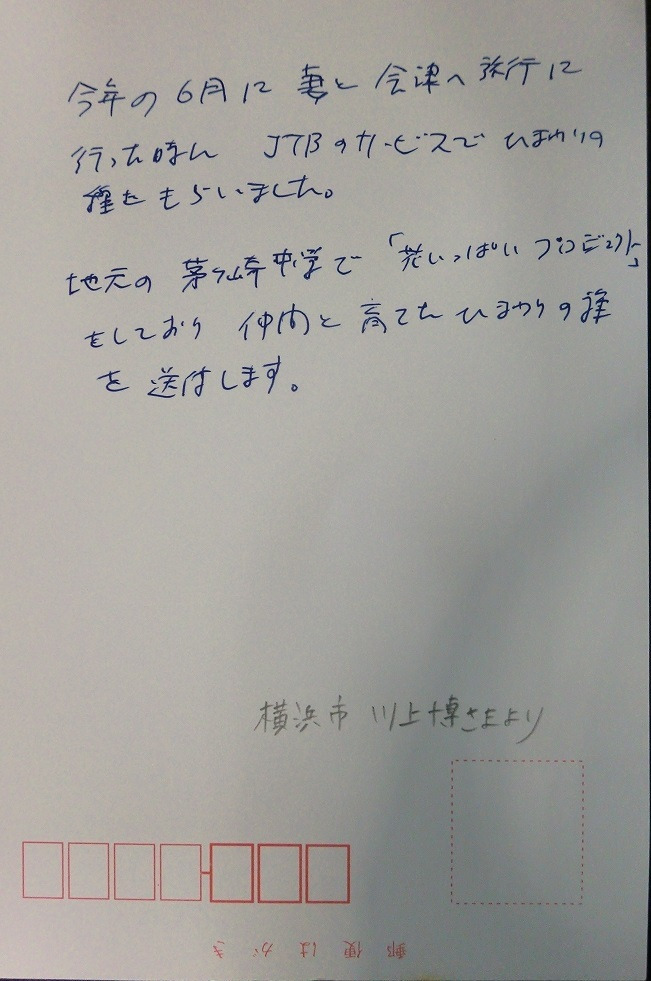 今年の6月に 妻と 会津へ 旅行に
行った時に JTBのサービスで ひまわりの
種をもらいました。
地元の 茅ヶ崎中学で 「花いっぱい プロジェクト」
をしており 仲間と 育てた ひまわりの種
を 送付します。
横浜市 川上博さまより
郵便はがき